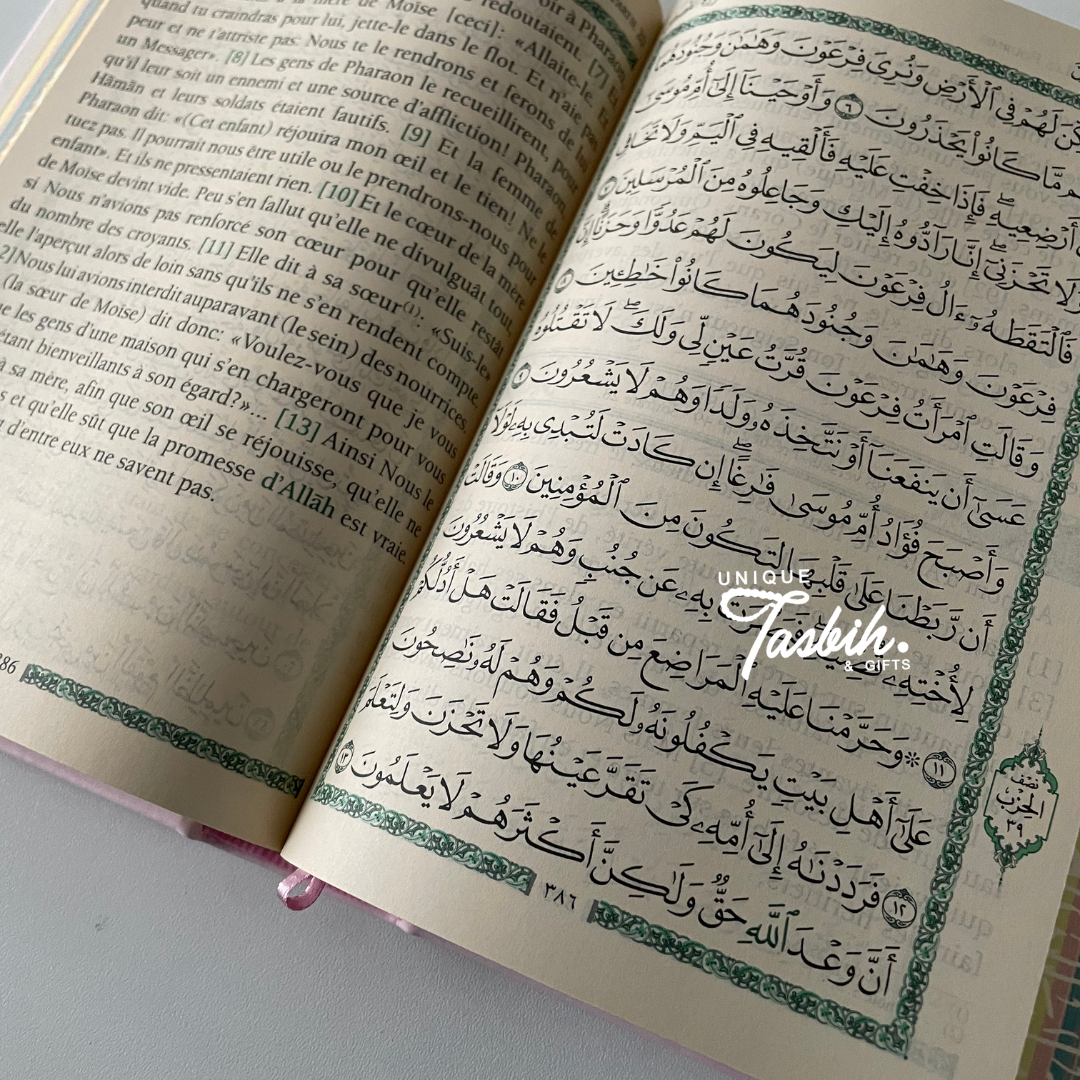 oir à Pharaon
a mère de Moïse [ceci]: «Allaite-le.
redoutaient. [7]
quand tu craindras pour lui, jette-le dans le flot. Et n'aie pas
peur et ne t'attriste pas: Nous te le rendrons et ferons de lui
un Messager». [8] Les gens de Pharaon le recueillirent, pour
qu'il leur soit un ennemi et une source d'affliction! Pharaon,
Hāmān et leurs soldats étaient fautifs. [9] Et la femme de
Pharaon dit: «(Cet enfant) réjouira mon œil et le tien! Ne le
tuez pas. Il pourrait nous être utile ou le prendrons-nous pour
enfant». Et ils ne pressentaient rien. [10] Et le cœur de la mère
de Moïse devint vide. Peu s'en fallut qu'elle ne divulguât tout,
si Nous n'avions pas renforcé son cœur pour qu'elle restât
du nombre des croyants. [11] Elle dit à sa sœur(1): «Suis-le»
elle l'aperçut alors de loin sans qu'ils ne s'en rendent compte
2] Nous lui avions interdit auparavant (le sein) des nourrices,
(la sœur de Moïse) dit donc: «Voulez-vous que je vous
e les gens d'une maison qui s'en chargeront pour vous
étant bienveillants à son égard?»... [13] Ainsi Nous le
à sa mère, afin que son œil se réjouisse, qu'elle ne
s et qu'elle sût que la promesse d'Allāh est vraie.
d'entre eux ne savent pas.
386
لَهُمْ فِي ٱلْأَرْضِ وَنُرِىَ فِرْعَوْنَ وَهَٰمَٰنَ وَجُنُودَهُمَا
مَّا كَانُوا۟ يَحْذَرُونَ ٦ وَأَوْحَيْنَآ إِلَىٰٓ أُمِّ مُوسَىٰٓ
أَرْضِعِيهِ ۖ فَإِذَا خِفْتِ عَلَيْهِ فَأَلْقِيهِ فِي ٱلْيَمِّ وَلَا تَخَافِى
وَلَا تَحْزَنِىٓ ۖ إِنَّا رَآدُّوهُ إِلَيْكِ وَجَاعِلُوهُ مِنَ ٱلْمُرْسَلِينَ ٧
فَٱلْتَقَطَهُۥٓ ءَالُ فِرْعَوْنَ لِيَكُونَ لَهُمْ عَدُوًّا وَحَزَنًا ۗ إِنَّ
فِرْعَوْنَ وَهَٰمَٰنَ وَجُنُودَهُمَا كَانُوا۟ خَٰطِـِٔينَ ٨
وَقَالَتِ ٱمْرَأَتُ فِرْعَوْنَ قُرَّتُ عَيْنٍ لِّى وَلَكَ ۖ لَا تَقْتُلُوهُ
عَسَىٰٓ أَن يَنفَعَنَآ أَوْ نَتَّخِذَهُۥ وَلَدًا وَهُمْ لَا يَشْعُرُونَ ٩
وَأَصْبَحَ فُؤَادُ أُمِّ مُوسَىٰ فَٰرِغًا ۖ إِن كَادَتْ لَتُبْدِى بِهِۦ لَوْلَآ
أَن رَّبَطْنَا عَلَىٰ قَلْبِهَا لِتَكُونَ مِنَ ٱلْمُؤْمِنِينَ ١٠ وَقَالَتْ
لِأُخْتِهِۦ قُصِّيهِ ۖ فَبَصُرَتْ بِهِۦ عَن جُنُبٍ وَهُمْ لَا يَشْعُرُونَ
١١ ۞ وَحَرَّمْنَا عَلَيْهِ ٱلْمَرَاضِعَ مِن قَبْلُ فَقَالَتْ هَلْ أَدُلُّكُمْ
عَلَىٰٓ أَهْلِ بَيْتٍ يَكْفُلُونَهُۥ لَكُمْ وَهُمْ لَهُۥ نَٰصِحُونَ
١٢ فَرَدَدْنَٰهُ إِلَىٰٓ أُمِّهِۦ كَىْ تَقَرَّ عَيْنُهَا وَلَا تَحْزَنَ وَلِتَعْلَمَ
أَنَّ وَعْدَ ٱللَّهِ حَقٌّ وَلَٰكِنَّ أَكْثَرَهُمْ لَا يَعْلَمُونَ ١٣
نصف
الحزب
٣٩
٣٨٦
UNIQUE
Tasbih.
& GIFTS